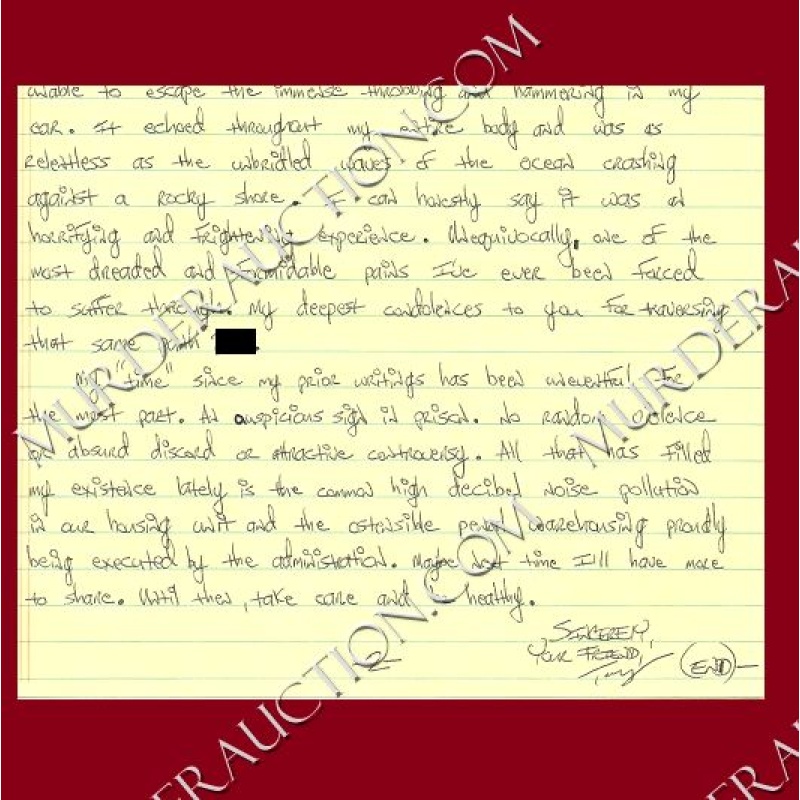 unable to escape the immense throbbing and hammering in my
ear. It echoed throughout my entire body and was as
relentless as the unbridled waves of the ocean crashing
against a rocky shore. I can honestly say it was an
horrifying and frightening experience. Unequivocally, one of the
most dreaded and formidable pains I've ever been forced
to suffer through. My deepest condolences to you for traversing
that same path .
My "time" since my prior writings has been uneventful for
the most part. An auspicious sign in prison. No random violence
or absurd discord or attractive controversy. All that has filled
my existence lately is the common high decibel noise pollution
in our housing unit and the ostensible penal warehousing proudly
being executed by the administration. Maybe next time I'll have more
to share. Until then, take care and be healthy.
Sincerely,
Your Friend,
-2-
(END)-
MURDERAUCTION.COM
MURDERAUCTION.COM